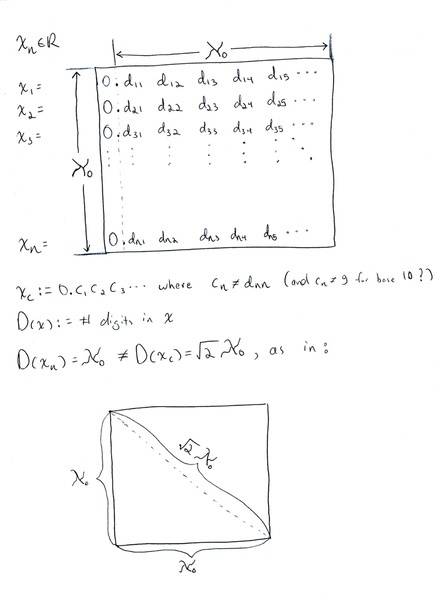 xₙ∈ℝ
ℵ₀
x₁= 0.d₁₁ d₁₂ d₁₃ d₁₄ d₁₅ ···
x₂= 0.d₂₁ d₂₂ d₂₃ d₂₄ d₂₅ ···
x₃= 0.d₃₁ d₃₂ d₃₃ d₃₄ d₃₅ ···
ℵ₀
xₙ= 0.dₙ₁ dₙ₂ dₙ₃ dₙ₄ dₙ₅ ···
x_c := 0.c₁c₂c₃··· where cₙ≠dₙₙ (and cₙ≠9 for base 10?)
D(x) := # digits in x
D(xₙ)=ℵ₀ ≠ D(x_c)=√2 ℵ₀, as in:
√2 ℵ₀
ℵ₀
ℵ₀